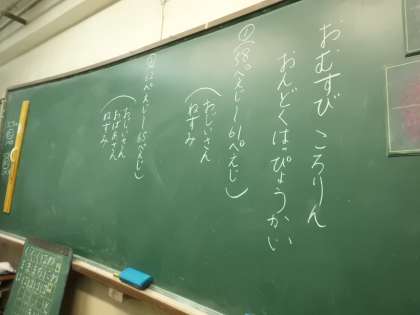 おむすび ころりん
おんどくはっぴょうかい
①(58ぺえじー61ぺえじ)
(おじいさん
ねずみ
②(62ぺえじー65ぺえじ)
(おじいさん
おばあさん
ねずみ